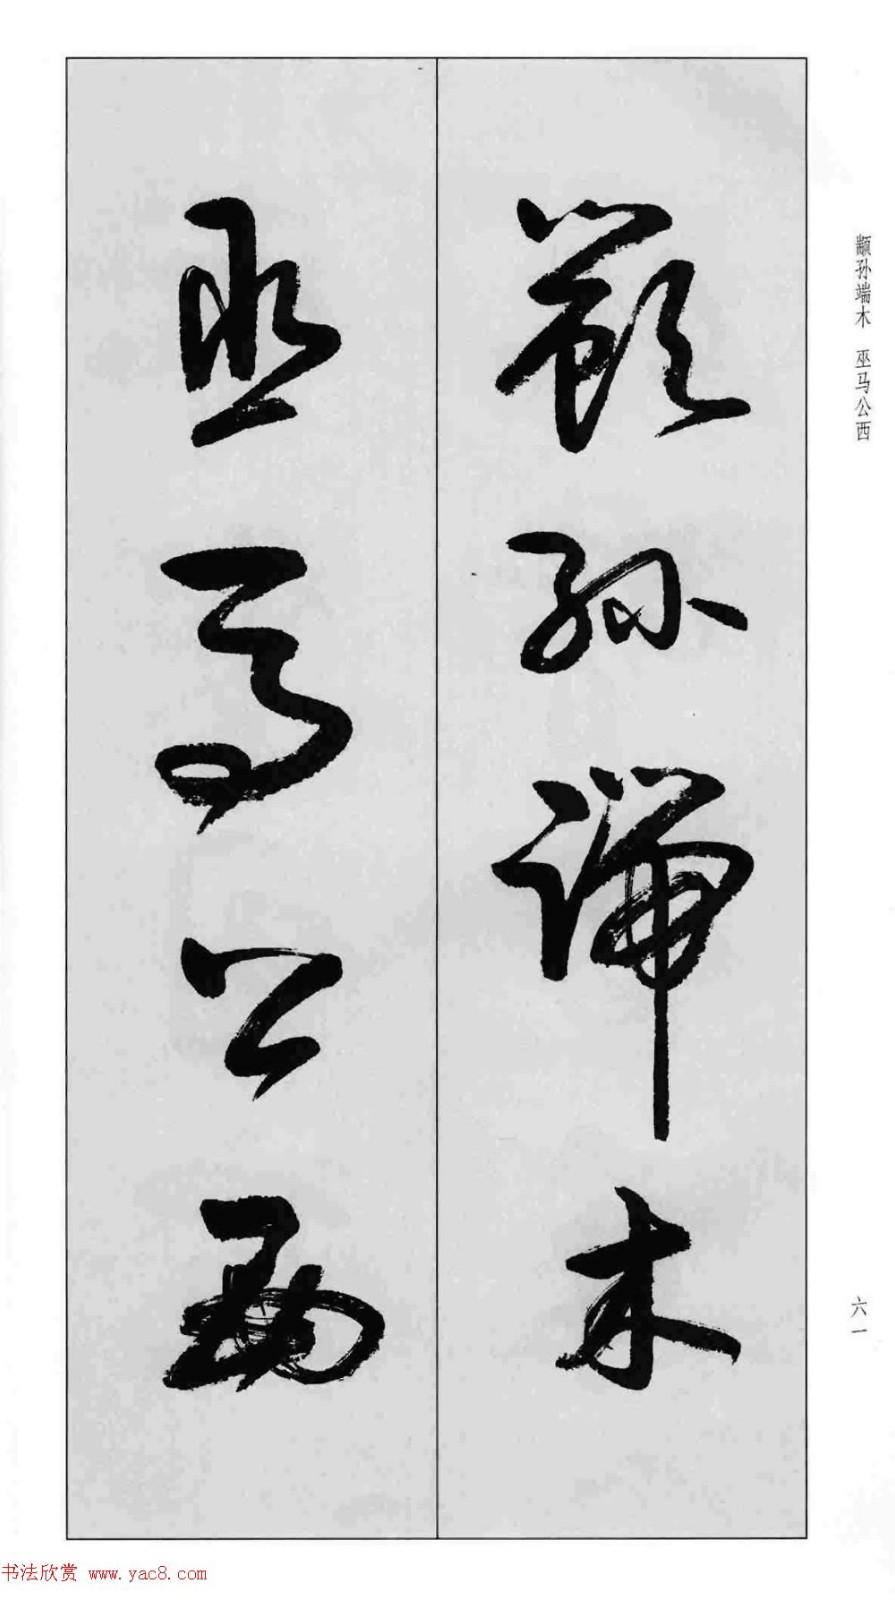 颛孙端木
巫马公西
颛孙端木 巫马公西
六一
书法欣赏 www.yac8.com